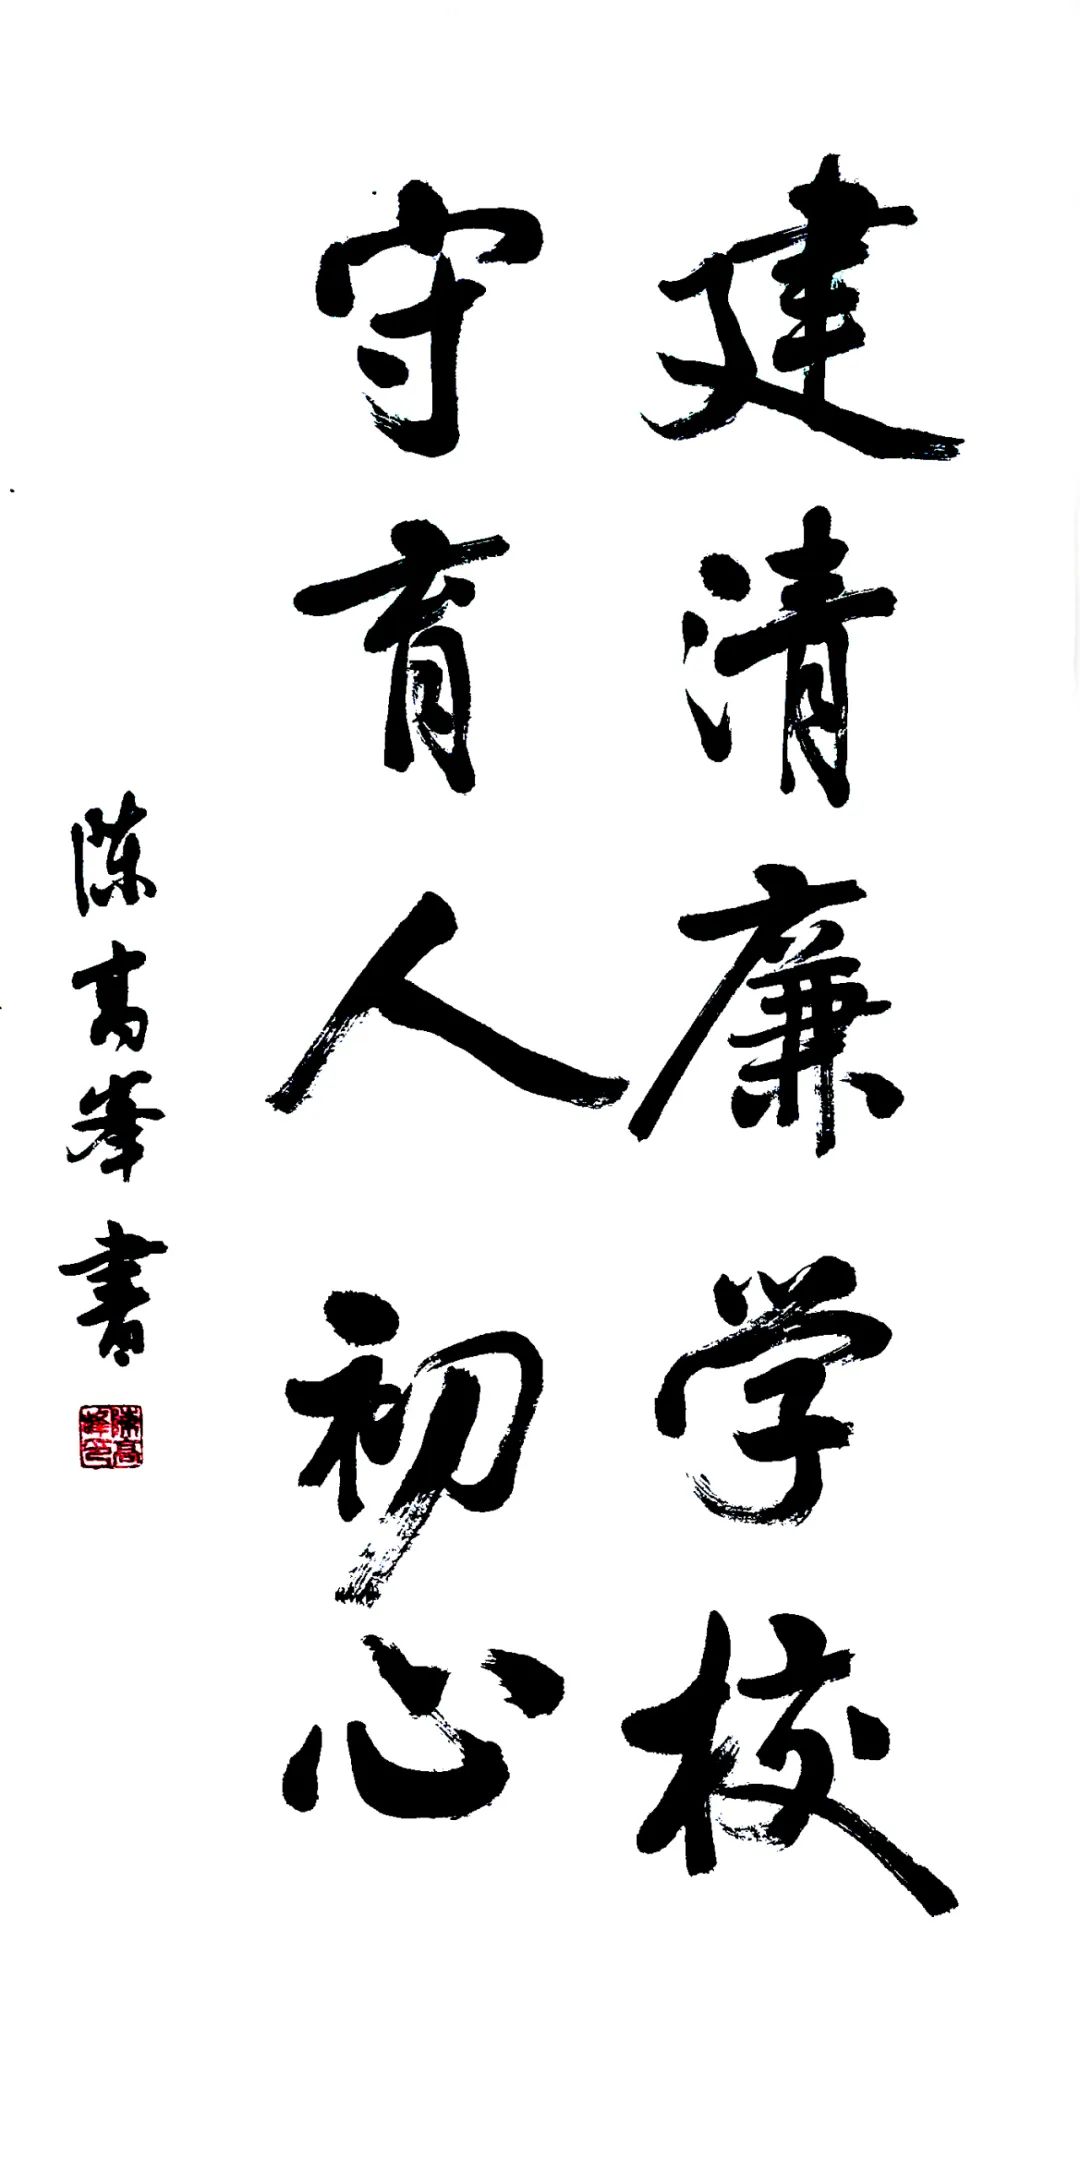 建清廉学校
守育人初心
陈高峯書
陈高峰印